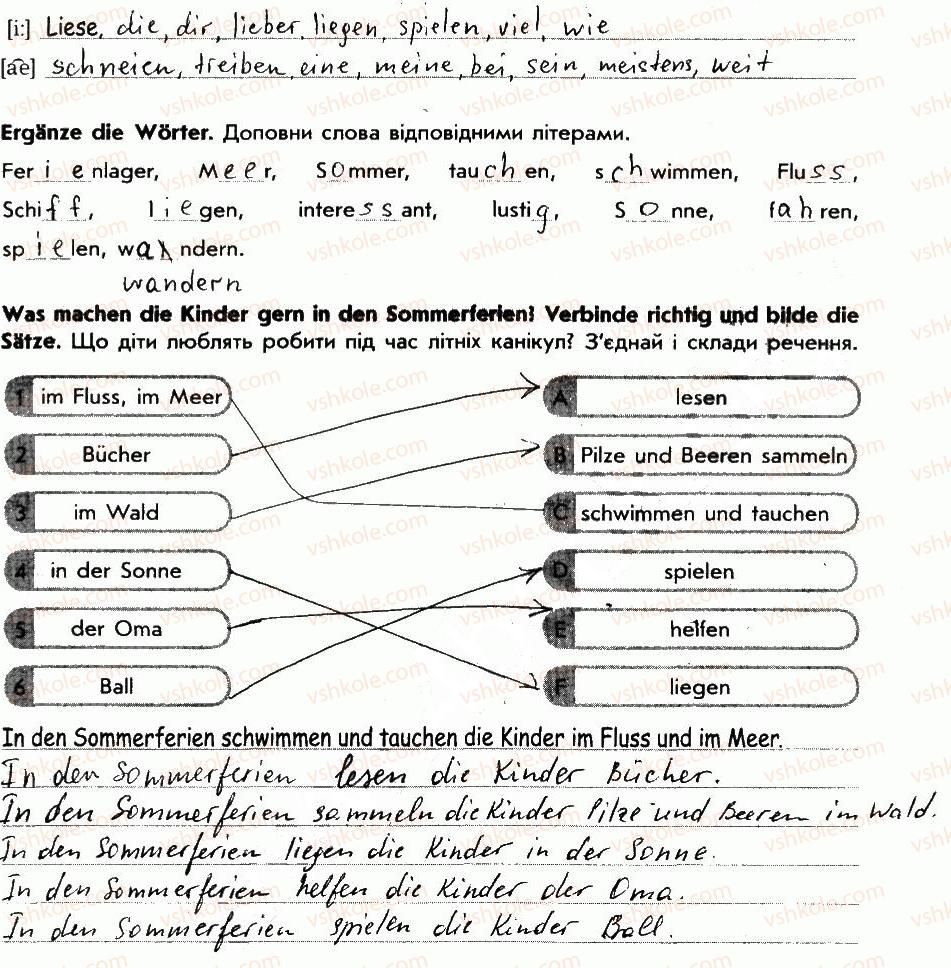 [i:] Liese, die, dir, lieber, liegen, spielen, viel, wie
[ae] schneien, treiben, eine, meine, bei, sein, meistens, weit
Ergänze die Wörter. Доповни слова відповідними літерами.
Ferienlager, Meer, Sommer, tauchen, schwimmen, Fluss,
Schiff, liegen, interessant, lustig, Sonne, fahren,
spielen, wandern.
wandern
Was machen die Kinder gern in den Sommerferien? Verbinde richtig und bilde die
Sätze. Що діти люблять робити під час літніх канікул? З'єднай і склади речення.
1 im Fluss, im Meer A lesen
2 Bücher B Pilze und Beeren sammeln
3 im Wald C schwimmen und tauchen
4 in der Sonne D spielen
5 der Oma E helfen
6 Ball F liegen
In den Sommerferien schwimmen und tauchen die Kinder im Fluss und im Meer.
In den Sommerferien lesen die Kinder Bücher.
In den Sommerferien sammeln die Kinder Pilze und Beeren im Wald.
In den Sommerferien liegen die Kinder in der Sonne.
In den Sommerferien helfen die Kinder der Oma.
In den Sommerferien spielen die Kinder Ball.